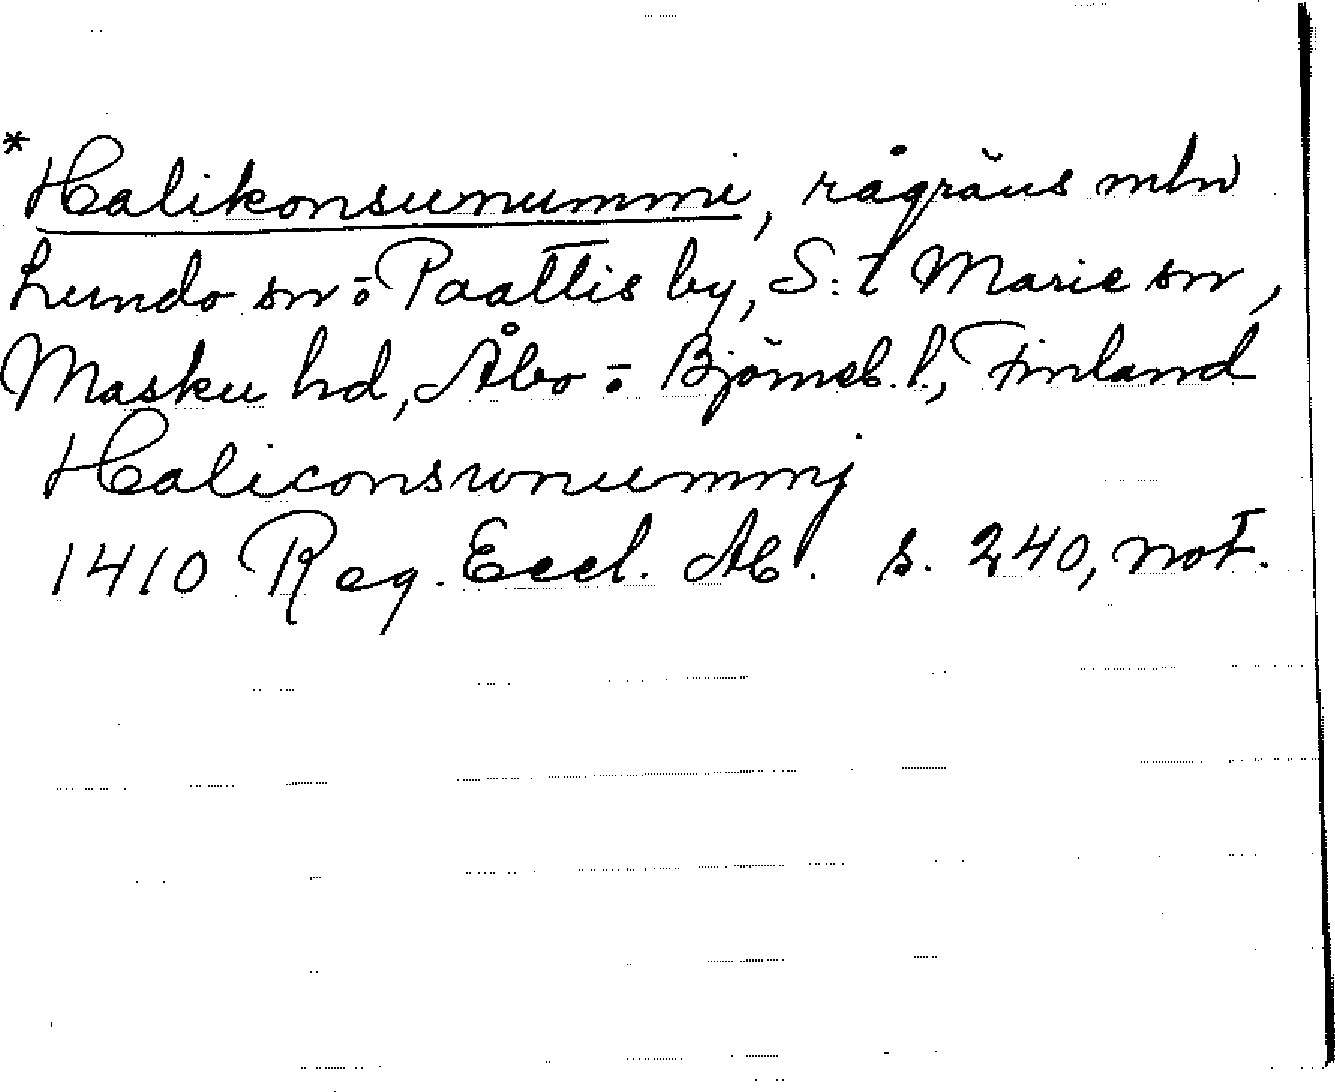 *Halikonsuunummi, rågräns mln
Lundo sn ÷ Paattis by, S:t Marie sn,
Masku hd, Åbo ÷ Björneb. l., Finland
Haliconswnummj
1410 Reg. Eccl. Ab. s. 240, not.